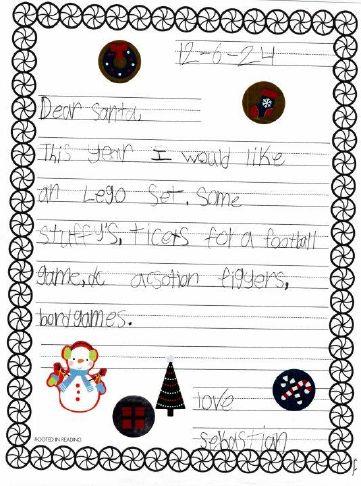 12-6-24
Dear santa,
This year I would like
an Lego set. Some
stuffy's, ticets for a football
game, dc acsotion figgers,
bordgames.
love
sebastian
ROOTED IN READING